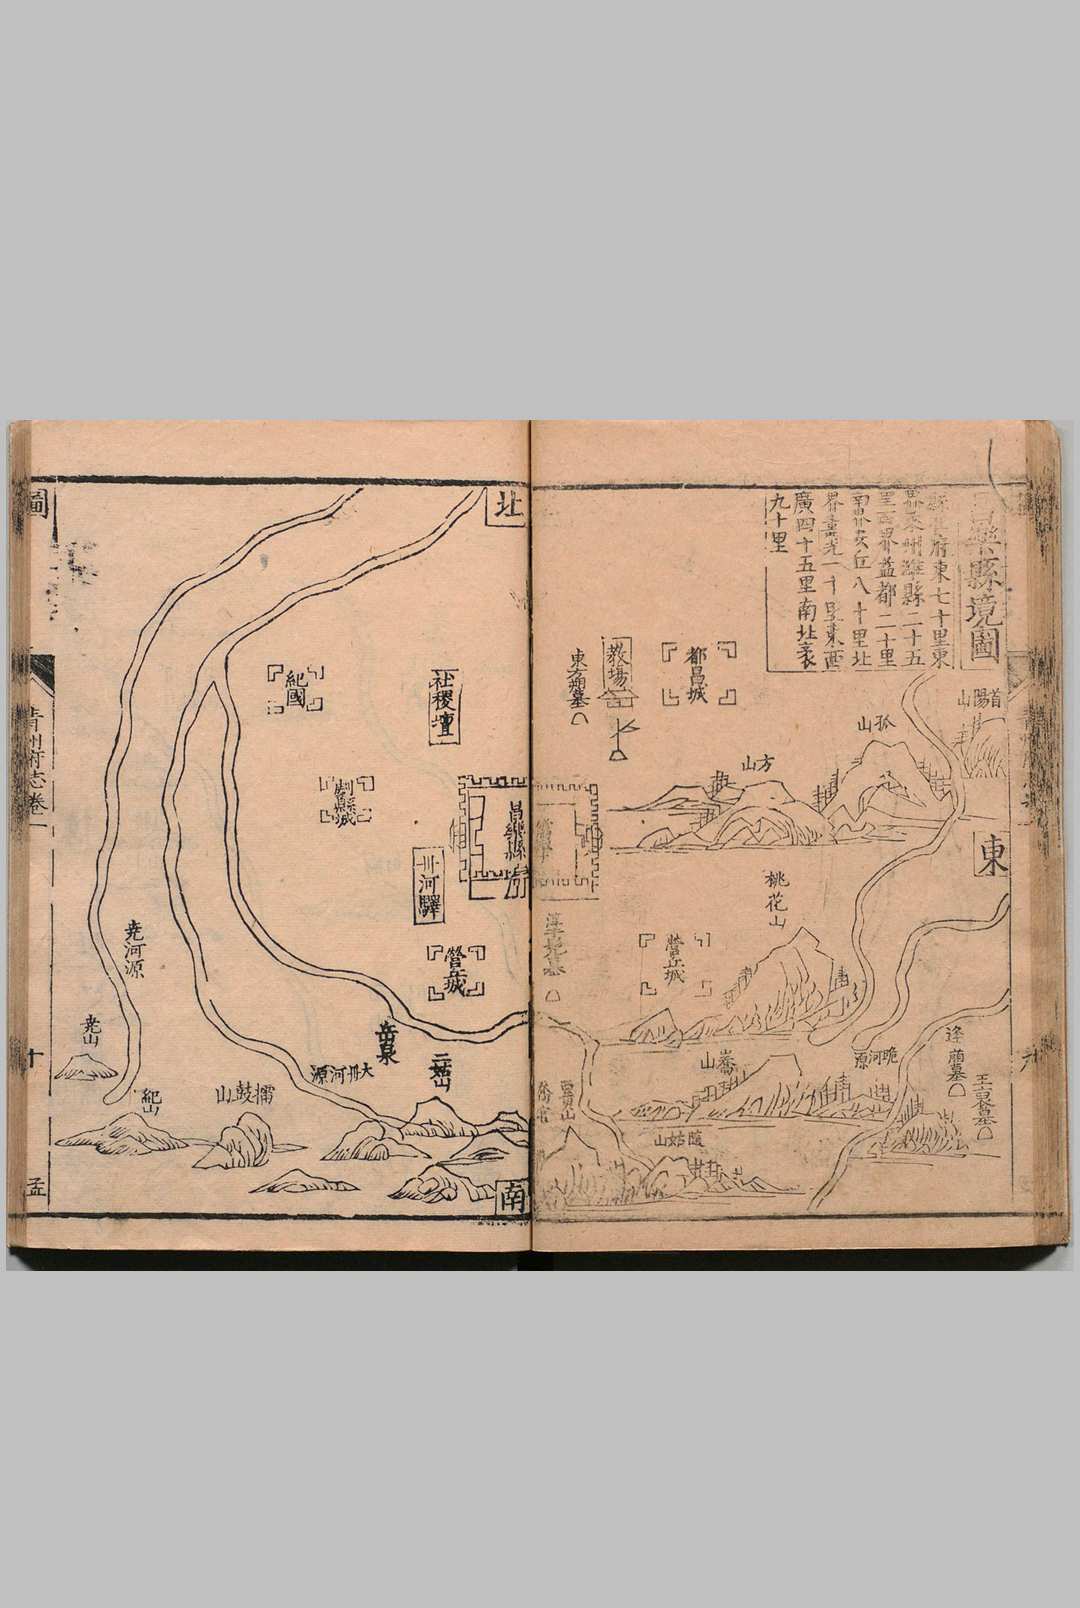 樂縣境圖
府東七十里東
州濰縣二十五
里西界益都二十里
八十里北
界壽光一十里東西
廣四十五里南北袤
九十里
首陽山
孤山
方山
都昌城
教場
東方朔墓
東
桃花山
營丘城
逄萠墓
王裒墓
跪河源
嵛山
隨姑山
北
社稷壇
紀國
劇縣城
昌樂縣
丹河驛
營丘城
岳泉
二姑山
大丹河源
擂鼓山
堯河源
堯山
紀山
南
圖
青州府志卷一
十
孟